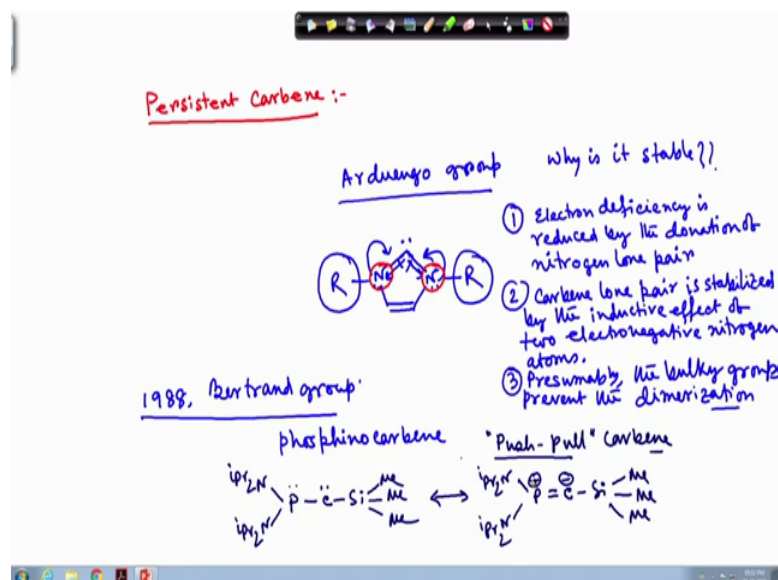 Persistent Carbene :-
Arduengo group
Why is it stable??
① Electron deficiency is
reduced by the donation of
nitrogen lone pair
② Carbene lone pair is stabilized
by the inductive effect of
two electronegative nitrogen
atoms.
③ Presumably, the bulky groups
prevent the dimerization
R N N R
1988, Bertrand group.
phosphinocarbene
"Push-pull" carbene
iPr2N P - C - Si Me Me Me
iPr2N
iPr2N P = C - Si Me Me Me
iPr2N